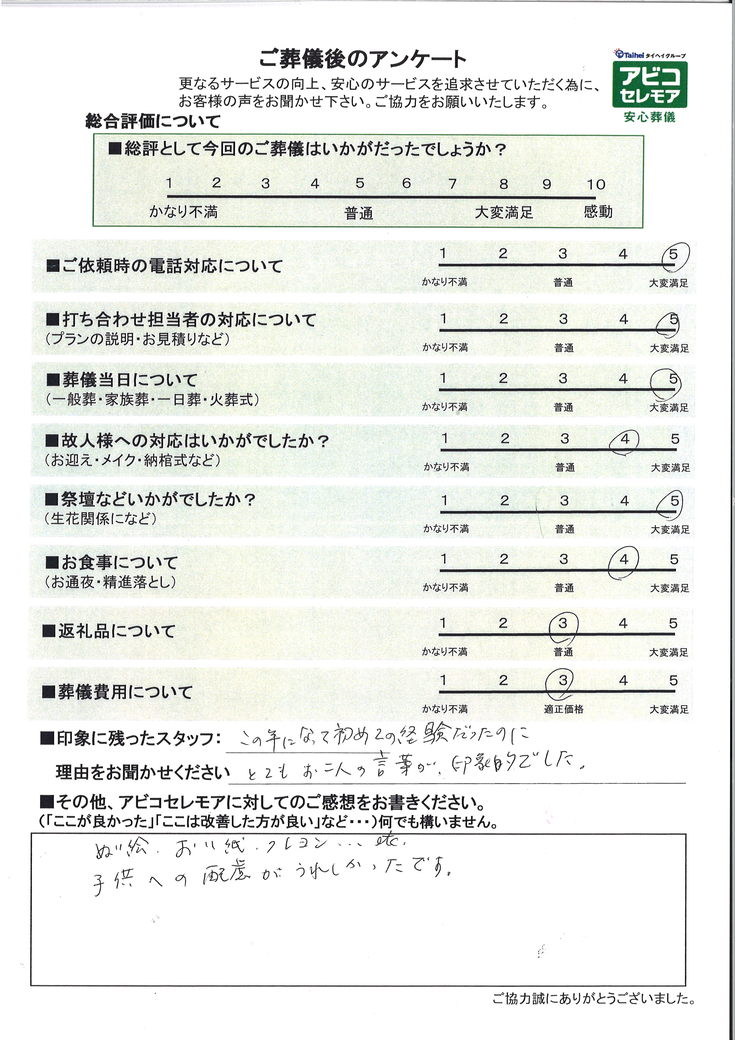 ご葬儀後のアンケート
Taihei タイヘイグループ
アビコ
セレモア
安心葬儀
更なるサービスの向上、安心のサービスを追求させていただく為に、
お客様の声をお聞かせ下さい。ご協力をお願いいたします。
総合評価について
■総評として今回のご葬儀はいかがだったでしょうか？
1 2 3 4 5 6 7 8 9 10
かなり不満 普通 大変満足 感動
■ご依頼時の電話対応について
1 2 3 4 5
かなり不満 普通 大変満足
■打ち合わせ担当者の対応について
(プランの説明・お見積りなど)
1 2 3 4 5
かなり不満 普通 大変満足
■葬儀当日について
(一般葬・家族葬・一日葬・火葬式)
1 2 3 4 5
かなり不満 普通 大変満足
■故人様への対応はいかがでしたか？
(お迎え・メイク・納棺式など)
1 2 3 4 5
かなり不満 普通 大変満足
■祭壇などいかがでしたか？
(生花関係になど)
1 2 3 4 5
かなり不満 普通 大変満足
■お食事について
(お通夜・精進落とし)
1 2 3 4 5
かなり不満 普通 大変満足
■返礼品について
1 2 3 4 5
かなり不満 普通 大変満足
■葬儀費用について
1 2 3 4 5
かなり不満 適正価格 大変満足
■印象に残ったスタッフ： この年になって初めての経験だったのに
理由をお聞かせください とてもお二人の言葉が、印象的でした。
■その他、アビコセレモアに対してのご感想をお書きください。
(「ここが良かった」「ここは改善した方が良い」など・・・)何でも構いません。
ぬり絵、おり紙、クレヨン...etc.
子供への配慮がうれしかったです。
ご協力誠にありがとうございました。